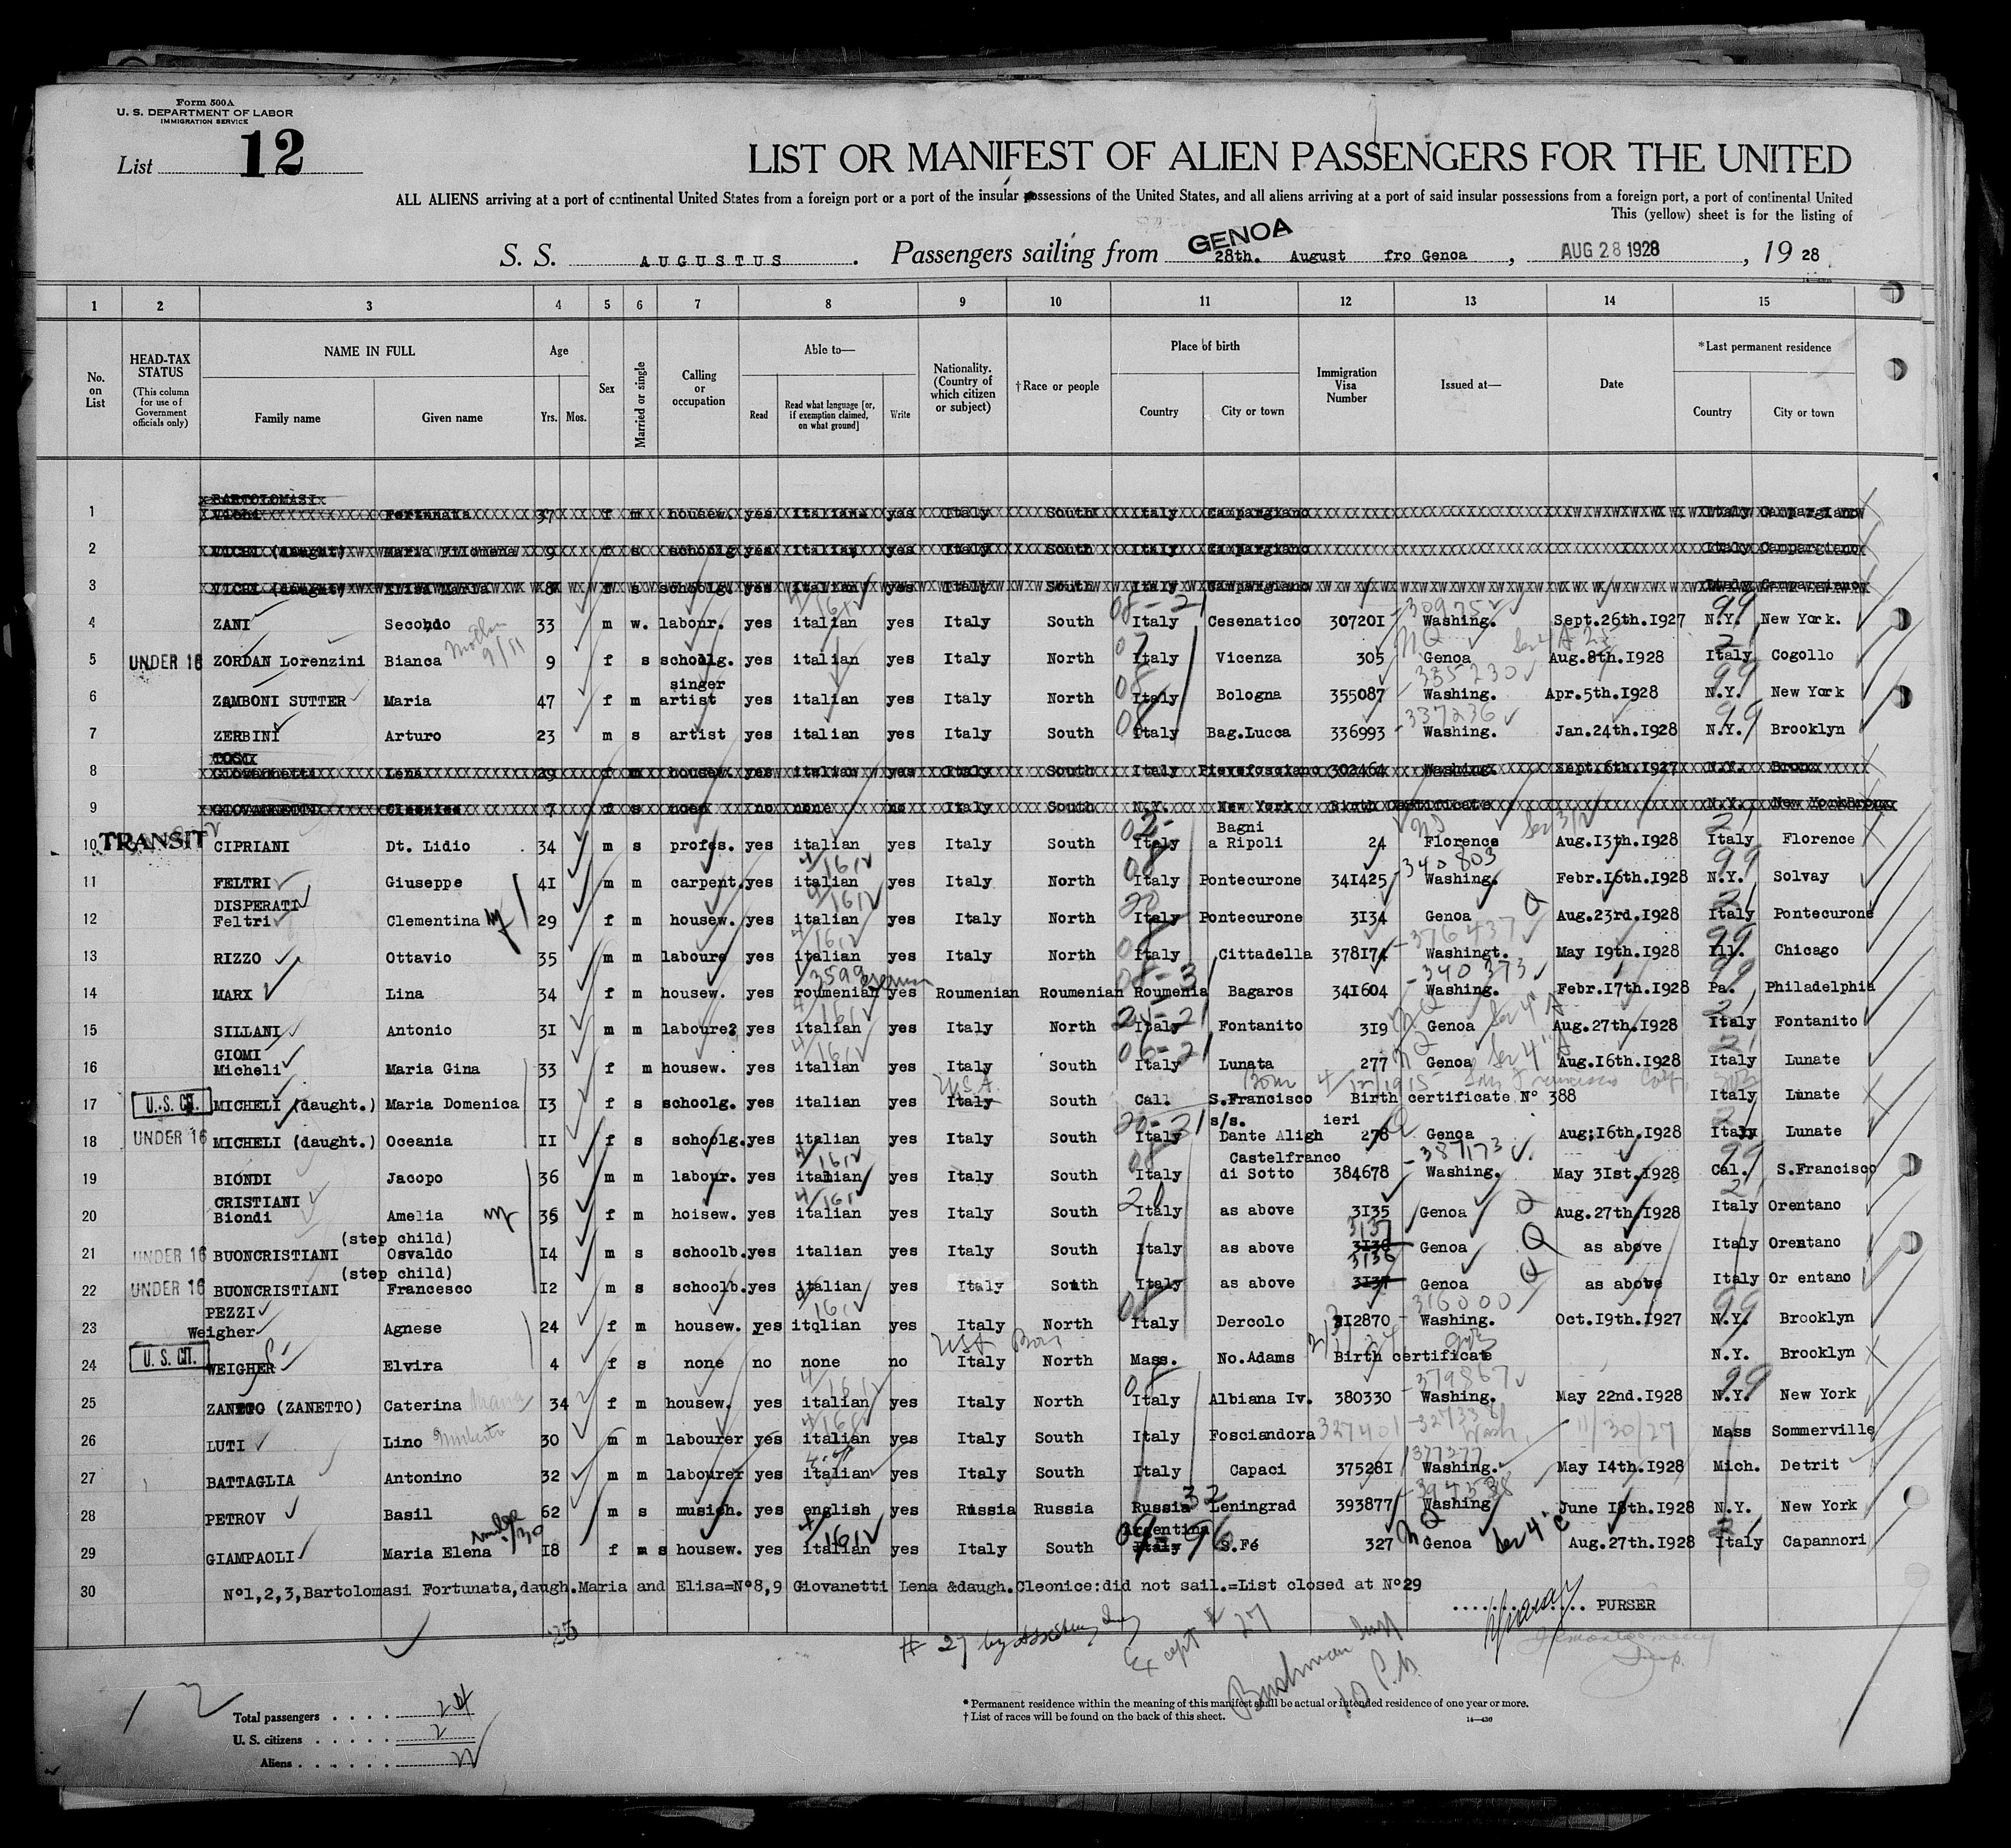 Form 500A
U. S. DEPARTMENT OF LABOR
IMMIGRATION SERVICE
List 12
LIST OR MANIFEST OF ALIEN PASSENGERS FOR THE UNITED
ALL ALIENS arriving at a port of continental United States from a foreign port or a port of the insular possessions of the United States, and all aliens arriving at a port of said insular possessions from a foreign port, a port of continental United
This (yellow) sheet is for the listing of
S. S. AUGUSTUS. Passengers sailing from GENOA 28th. August fro Genoa, AUG 28 1928, 1928
1 2 3 4 5 6 7 8 9 10 11 12 13 14 15
No. on List
HEAD-TAX STATUS
(This column for use of Government officials only)
NAME IN FULL
Family name
Given name
Age
Yrs. Mos.
Sex
Married or single
Calling or occupation
Able to—
Read
Read what language [or, if exemption claimed, on what ground]
Write
Nationality. (Country of which citizen or subject)
†Race or people
Place of birth
Country
City or town
Immigration Visa Number
Issued at—
Date
*Last permanent residence
Country
City or town
BARTOLOMASI
1 Vichi Fortunata 37 f m housew. yes italian yes Italy South Italy Campargiano Italy Campargiano
2 VICHI (daught) Maria Filomena 9 f s schoolg yes italian yes Italy South Italy Campargiano Italy Campargiano
3 VICHI (daught) Elisa Maria 8 f s schoolg. yes italian yes Italy South Italy Campargiano Italy Campargiano
4 ZANI Secondo 33 m w. labour. yes italian yes Italy South Italy Cesenatico 307201 -30975 Washing. Sept.26th.1927 N.Y. New York.
5 UNDER 16 ZORDAN Lorenzini Bianca 9 f s schoolg. yes italian yes Italy North Italy Vicenza 305 Genoa Aug.8th.1928 Italy Cogollo
singer
6 ZAMBONI SUTTER Maria 47 f m artist yes italian yes Italy North Italy Bologna 355087 -335230 Washing. Apr.5th.1928 N.Y. New York
7 ZERBINI Arturo 23 m s artist yes italian yes Italy South Italy Bag.Lucca 336993 -337236 Washing. Jan.24th.1928 N.Y. Brooklyn
TOSI
8 Giovannetti Lena 29 f m housew. yes italian yes Italy South Italy Pievefosciano 302464 Washing. sept.6th.1927 N.Y. Bronx
9 GIOVANETTI Cleonice 7 f s noen no none no Italy South N.Y. New York Birth certificate N.Y. New York Bronx
10 TRANSIT CIPRIANI Dt. Lidio 34 m s profes. yes italian yes Italy South Italy Bagni a Ripoli 24 Florence Aug.13th.1928 Italy Florence
11 FELTRI Giuseppe 41 m m carpent. yes italian yes Italy North Italy Pontecurone 341425 -340803 Washing. Febr.16th.1928 N.Y. Solvay
DISPERATI
12 Feltri Clementina 29 f m housew. yes italian yes Italy North Italy Pontecurone 3134 Genoa Aug.23rd.1928 Italy Pontecurone
13 RIZZO Ottavio 35 m m laboure yes italian yes Italy North Italy Cittadella 378174 -376437 Washingt. May 19th.1928 Ill. Chicago
14 MARX Lina 34 f m housew. yes roumenian yes Roumenian Roumenian Roumenia Bagaros 341604 -340373 Washing. Febr.17th.1928 Pa. Philadelphia
15 SILLANI Antonio 31 m m laboure? yes italian yes Italy North Italy Fontanito 319 Genoa Aug.27th.1928 Italy Fontanito
GIOMI
16 Micheli Maria Gina 33 f m housew. yes italian yes Italy South Italy Lunata 277 Genoa Aug.16th.1928 Italy Lunate
17 U.S. CIT. MICHELI (daught.) Maria Domenica 13 f s schoolg. yes italian yes Italy South Cal. S.Francisco Birth certificate N° 388 Italy Lunate
18 UNDER 16 MICHELI (daught.) Oceania 11 f s schoolg. yes italian yes Italy South Italy s/s. Dante Aligh ieri 278 Genoa Aug;16th.1928 Italy Lunate
19 BIONDI Jacopo 36 m m labour. yes italian yes Italy South Italy Castelfranco di Sotto 384678 -387173 Washing. May 31st.1928 Cal. S.Francisco
CRISTIANI
20 Biondi Amelia 36 f m hoisew. yes italian yes Italy South Italy as above 3135 Genoa Aug.27th.1928 Italy Orentano
(step child)
21 UNDER 16 BUONCRISTIANI Osvaldo 14 m s schoolb. yes italian yes Italy South Italy as above 3137 3136 Genoa as above Italy Orentano
(step child)
22 UNDER 16 BUONCRISTIANI Francesco 12 m s schoolb. yes italian yes Italy South Italy as above 3136 3137 Genoa as above Italy Or entano
PEZZI
23 Weigher Agnese 24 f m housew. yes itqlian yes Italy North Italy Dercolo 312870 -316000 Washing. Oct.19th.1927 N.Y. Brooklyn
24 U.S. CIT. WEIGHER Elvira 4 f s none no none no Italy North Mass. No.Adams Birth certificate N.Y. Brooklyn
25 ZANETTO (ZANETTO) Caterina 34 f m housew. yes italian yes Italy North Italy Albiana Iv. 380330 -379867 Washing. May 22nd.1928 N.Y. New York
26 LUTI Lino Umberto 30 m m labourer yes italian yes Italy South Italy Fosciandora 327401 -327338 Wash. 11/30/27 Mass Sommerville
27 BATTAGLIA Antonino 32 m m labourer yes italian yes Italy South Italy Capaci 375281 377377 Washing. May 14th.1928 Mich. Detrit
28 PETROV Basil 62 m s musich. yes english yes Russia Russia Russia Leningrad 393877 -394588 Washing June 18th.1928 N.Y. New York
29 GIAMPAOLI Maria Elena 18 f m s housew. yes italian yes Italy South Argentina Italy S.Fé 327 Genoa Aug.27th.1928 Italy Capannori
30 N°1,2,3,Bartolomasi Fortunata,daugh.Maria and Elisa=N°8,9 Giovanetti Lena &daugh.Cleonice:did not sail.=List closed at N°29
PURSER
25
Except # 27
Bushman Insp
Total passengers . . . . 24
U. S. citizens . . . . . 2
Aliens . . . . . . 22
* Permanent residence within the meaning of this manifest shall be actual or intended residence of one year or more.
† List of races will be found on the back of this sheet.
14—430